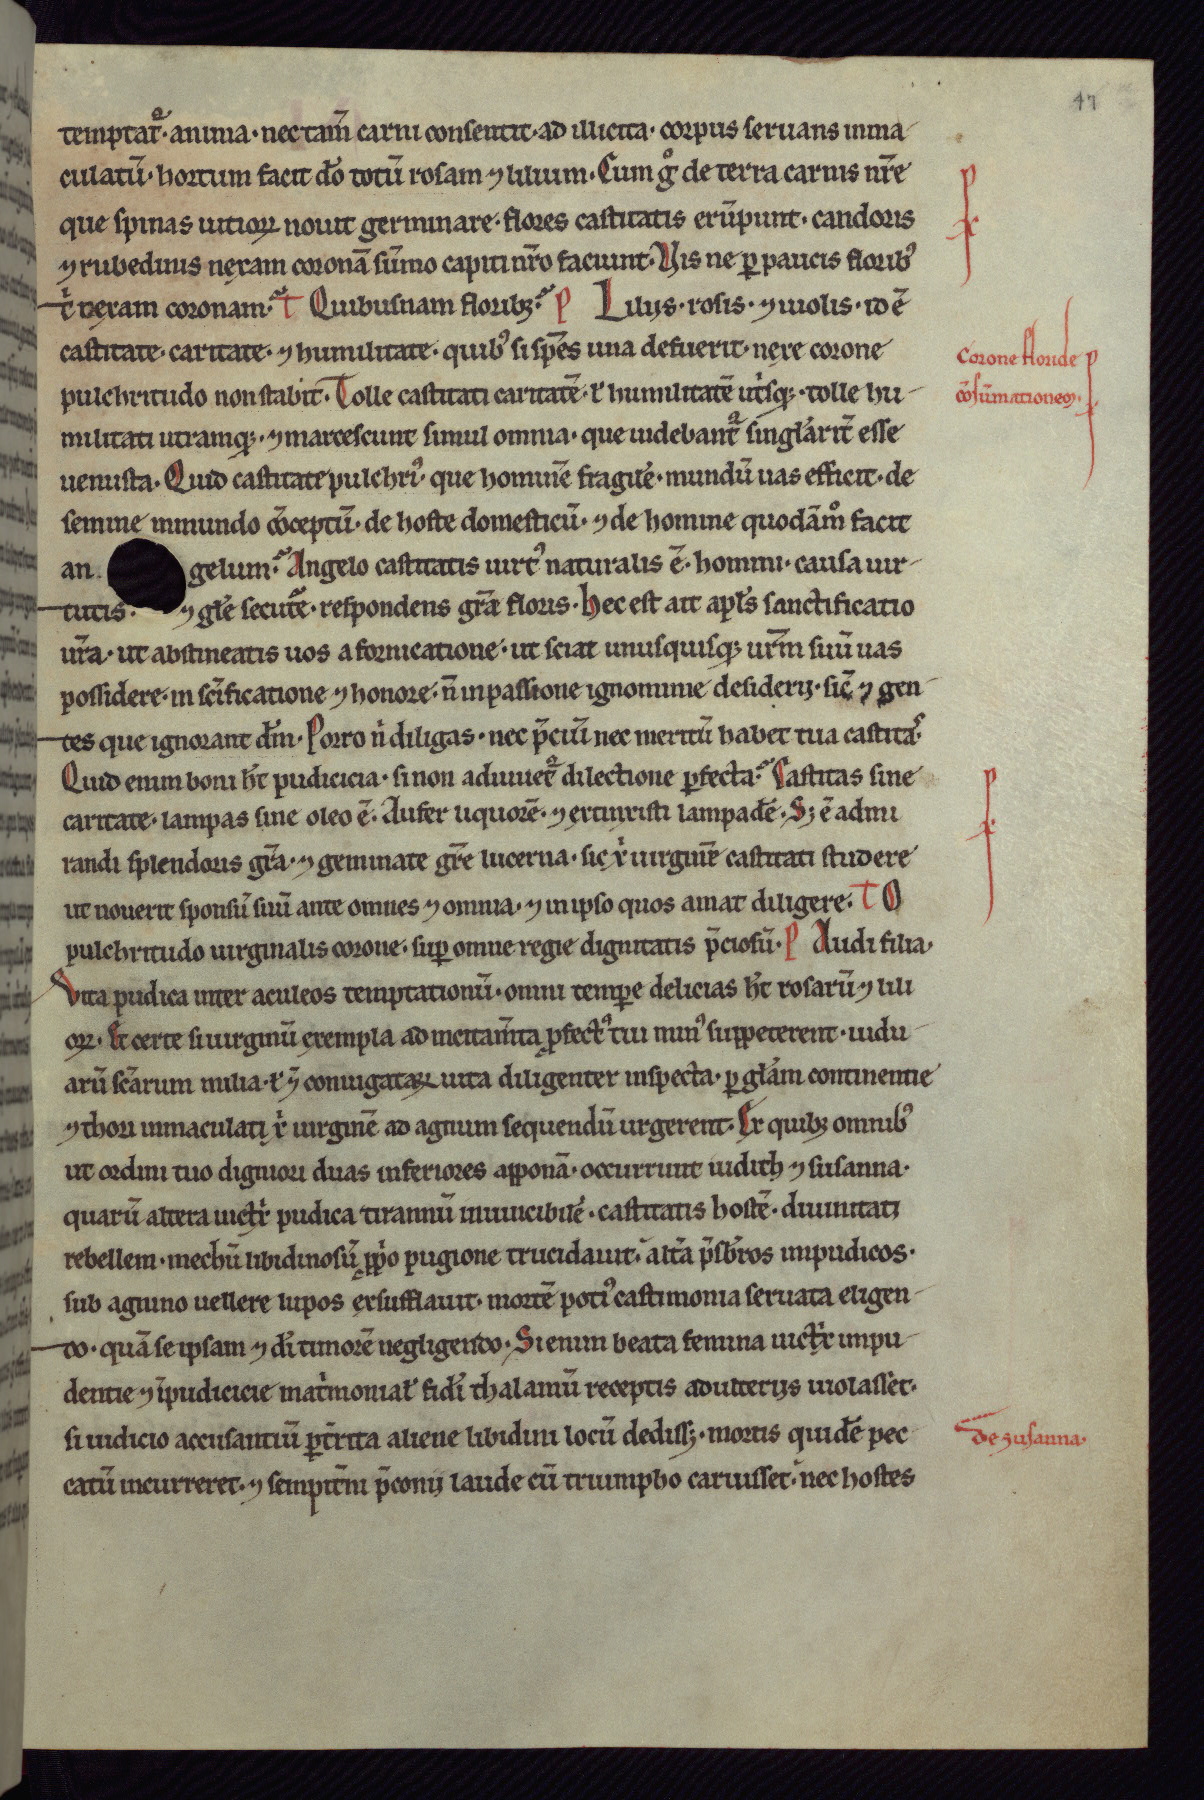 47
temptat᷑· anima· nec tam̄ carni consentit· ad illicita· corpus seruans inma
culatū· hortum facit dō totū rosam ⁊ lilium· Cum gͦ de terra carnis nr̄e
que spinas uitioꝝ nouit germinare· flores castitatis erūpunt· candoris
⁊ rubedinis nexam coronā sūmo capiti nr̄o faciunt· Vis ne ꝑ paucis floribꝰ
nexam coronam· T Quibusnam floribꝫ· P Lilijs· rosis· ⁊ uiolis· id ē
castitate· caritate· ⁊ humilitate· quibꝰ si sp̄es una defuerit· nexe corone
pulchritudo non stabit· Tolle castitati caritatē· ł humilitatē utīsqꝫ· tolle hu
militati utramqꝫ· ⁊ marcescunt simul omnia· que uidebant᷑ singlārit̄ esse
uenusta· Quid castitate pulchriꝰ· que hominē fragilē· mundū uas efficit· de
semine inmundo ꝯ̄ceptū· de hoste domesticū· ⁊ de homine quodāmͦ facit
an gelum· Angelo castitatis uirtꝰ naturalis ē· homini· causa uir
tutis· ⁊ glē secutē· respondens gr̄a floris· hec est ait apl̄s sanctificatio
ur̄a· ut abstineatis uos a fornicatione· ut sciat unusquisqꝫ ur̄m suū uas
possidere· in scīficatione ⁊ honore· n̄ in passione ignominie desiderij· sic̄ ⁊ gen
tes que ignorant dm̄· Porro ni diligas· nec p̄ciū nec meritū habet tua castitaˢ
Quid enim boni h̄t pudicicia· si non adiuuet᷑ dilectione ꝑfecta· Castitas sine
caritate· lampas sine oleo ē· Aufer liquorē· ⁊ extinxisti lampadē· Sꝫ ē admi
randi splendoris gr̄a· ⁊ geminate gr̄e lucerna· sic xi uirginē castitati studere
ut nouerit sponsū suū ante omnes ⁊ omnia· ⁊ in ipso quos amat diligere· T O
pulchritudo uirginalis corone· suꝑ omne regie dignitatis p̄ciosū· P Audi filia·
Vita pudica inter aculeos temptationū· omni tempe delicias h̄t rosarū ⁊ lili
oꝝ· Et certe si uirginū exempla ad incitam̄ta ꝓfectꝰ tui minꝰ suppeterent· uidu
arū scārum milia· ł ⁊ coniugataꝝ uita diligenter inspecta· ꝑ glām continentie
⁊ thori inmaculati xi uirginē ad agnum sequendū urgerent· Ex quibꝫ omnibꝰ
ut ordini tuo digniori duas inferiores apponā· occurrunt iudith ⁊ susanna·
quarū altera uictx̄ pudica tirannū inuincibilē· castitatis hostē· diuinitati
rebellem· mechū libidinosū ꝓpo pugione trucidauit· alt̄a p̄sbr̄os impudicos·
sub agnino uellere lupos exsufflauit· mortē potiꝰ castimonia seruata eligen
do· quā se ipsam ⁊ di timorē negligendo· Si enim beata femina uictx̄ impu
dentie ⁊ īpudicicie mat̄monial fidi thalamū receptis adulterijs uiolasset·
si iudicio accusantiū ꝑtrita aliene libidini locū dedissꝫ· mortis quidē pec
catū incurreret· ⁊ sempit̄ni p̄conij laude cū triumpho caruisset· nec hostes
P
Corone floride
ꝯ̄sūmationem·
P
P
De susanna·